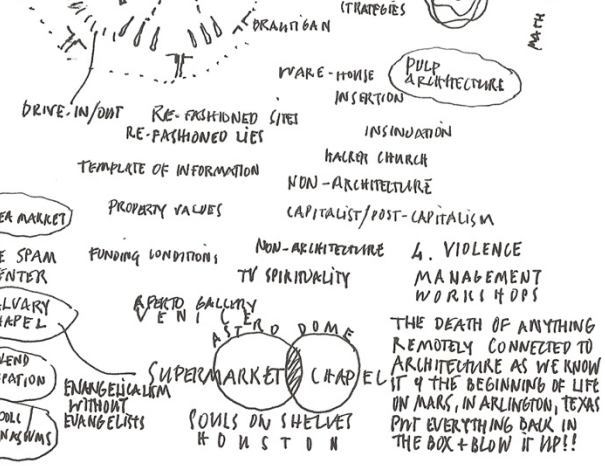 STRATEGIES
BRAUTIGAN
MATH
WARE-HOUSE
INSERTION
PULP
ARCHITECTURE
DRIVE-IN/OUT
RE-FASHIONED SITES
RE-FASHIONED LIES
INSINUATION
HACKER CHURCH
TEMPLATE OF INFORMATION
NON-ARCHITECTURE
EA MARKET
PROPERTY VALUES
CAPITALIST/POST-CAPITALISM
E SPAM
ENTER
FUNDING CONDITIONS
NON-ARCHITECTURE
TV SPIRITUALITY
4. VIOLENCE
MANAGEMENT
WORKSHOPS
LVARY
HAPEL
APERTO GALLERY
VENICE
ASTRO DOME
SUPERMARKET CHAPEL
LEND
PATION
ENANGELICALISM
WITHOUT
EVANGELISTS
SOULS ON SHELVES
HOUSTON
OOL
NASIUMS
THE DEATH OF ANYTHING
REMOTELY CONNECTED TO
ARCHITECTURE AS WE KNOW
IT & THE BEGINNING OF LIFE
ON MARS, IN ARLINGTON, TEXAS
PUT EVERYTHING BACK IN
THE BOX + BLOW IT UP!!